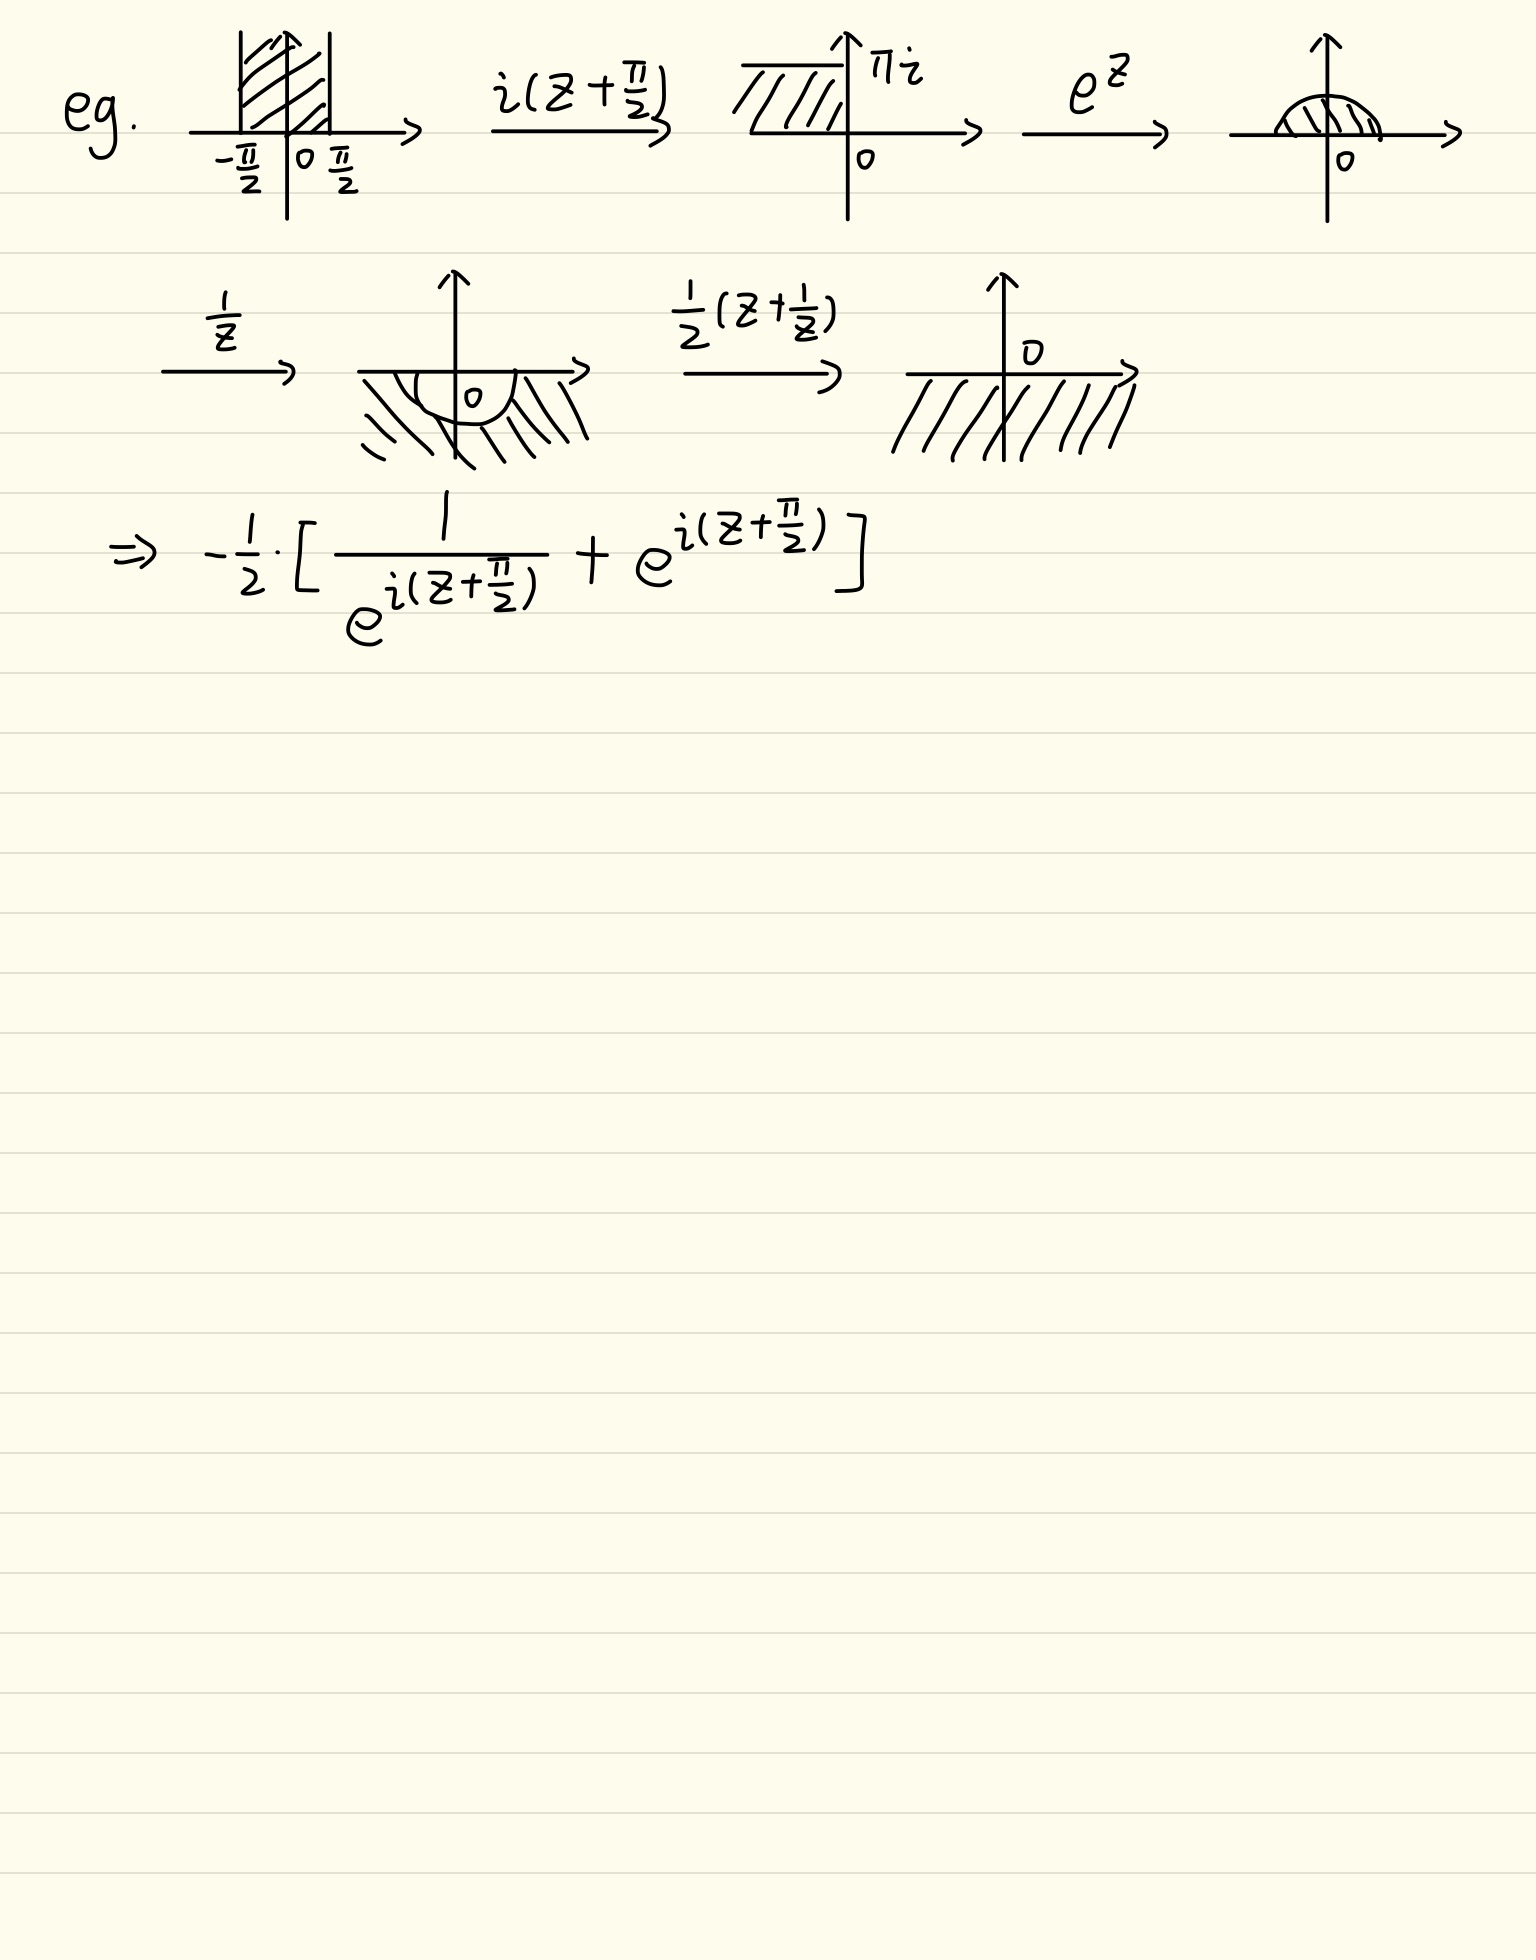 eg. -π/2 0 π/2 i(z+π/2) πi 0 e^z 0
1/z 0 1/2(z+1/z) 0
⇒ -1/2·[1/e^{i(z+π/2)} + e^{i(z+π/2)}]